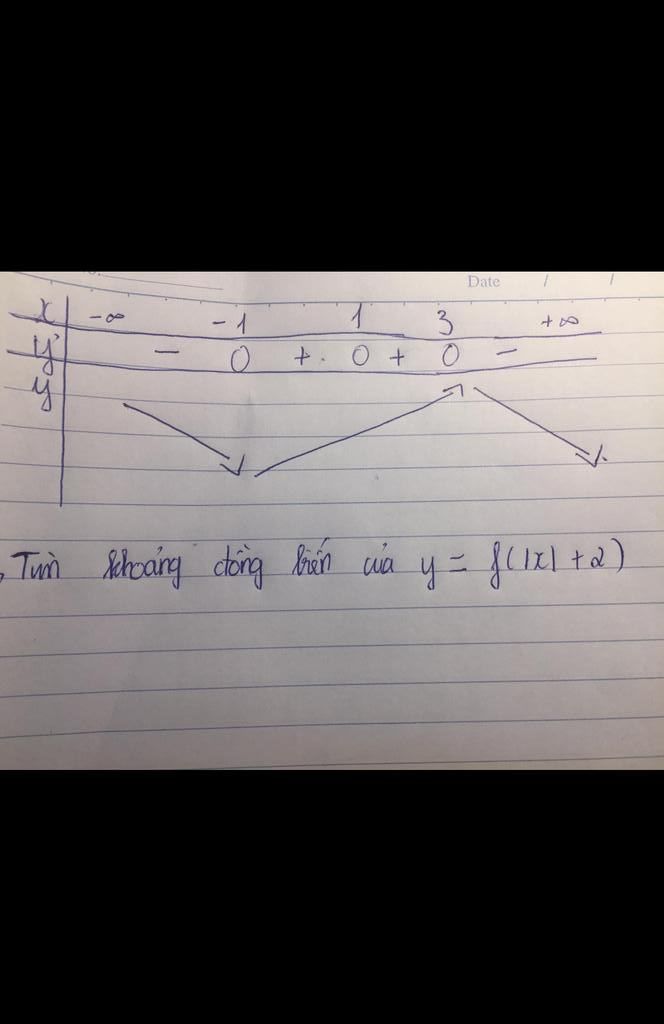 Date / /
x -∞ -1 1 3 +∞
y' - 0 + 0 + 0 -
y
Tìm khoảng đồng biến của y = f(|x| + 2)